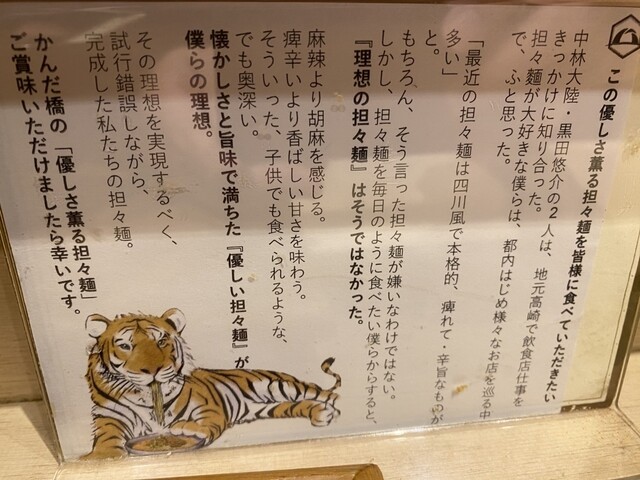 この優しさ薫る担々麺を皆様に食べていただきたい
中林大陸・黒田悠介の2人は、地元高崎で飲食店仕事を
きっかけに知り合った。
担々麺が大好きな僕らは、都内はじめ様々なお店を巡る中
で、ふと思った。
「最近の担々麺は四川風で本格的、痺れて・辛旨なものが
多い」
と。
もちろん、そう言った担々麺が嫌いなわけではない。
しかし、担々麺を毎日のように食べたい僕らからすると、
『理想の担々麺』はそうではなかった。
麻辣より胡麻を感じる。
痺辛いより香ばしい甘さを味わう。
そういった、子供でも食べられるような、
でも奥深い。
懐かしさと旨味で満ちた『優しい担々麺』が
僕らの理想。
その理想を実現するべく、
試行錯誤しながら、
完成した私たちの担々麺。
かんだ橋の「優しさ薫る担々麺」
ご賞味いただけましたら幸いです。